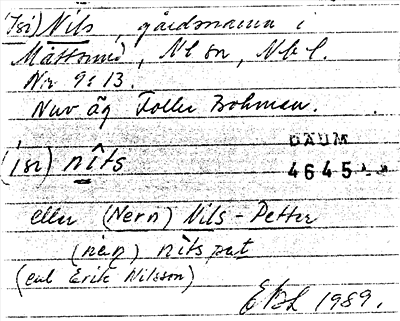 Isi) Nils, gårdsnamn i
Måttsund, Nl sn, Nbl.
Nr 9:13.
Nuv äg Folle Bohman.
DAUM
(isi) nîts 4645
eller (Nern) Nils-Petter
(nen) nîtspet
(enl Erik Nilsson)
EBL 1989.